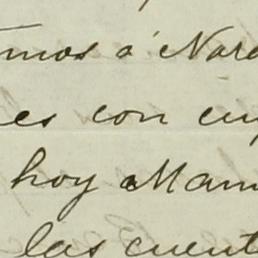 mos á Nar
es con cuy
hoy Mam
las cuent